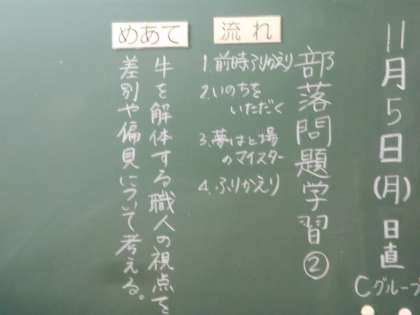 11月5日(月)日直
Cグループ
部落問題学習②
流れ
1.前時ふりかえり
2.いのちを
いただく
3.夢はと場
のマイスター
4.ふりかえり
めあて
牛を解体する職人の視点で
差別や偏見について考える。